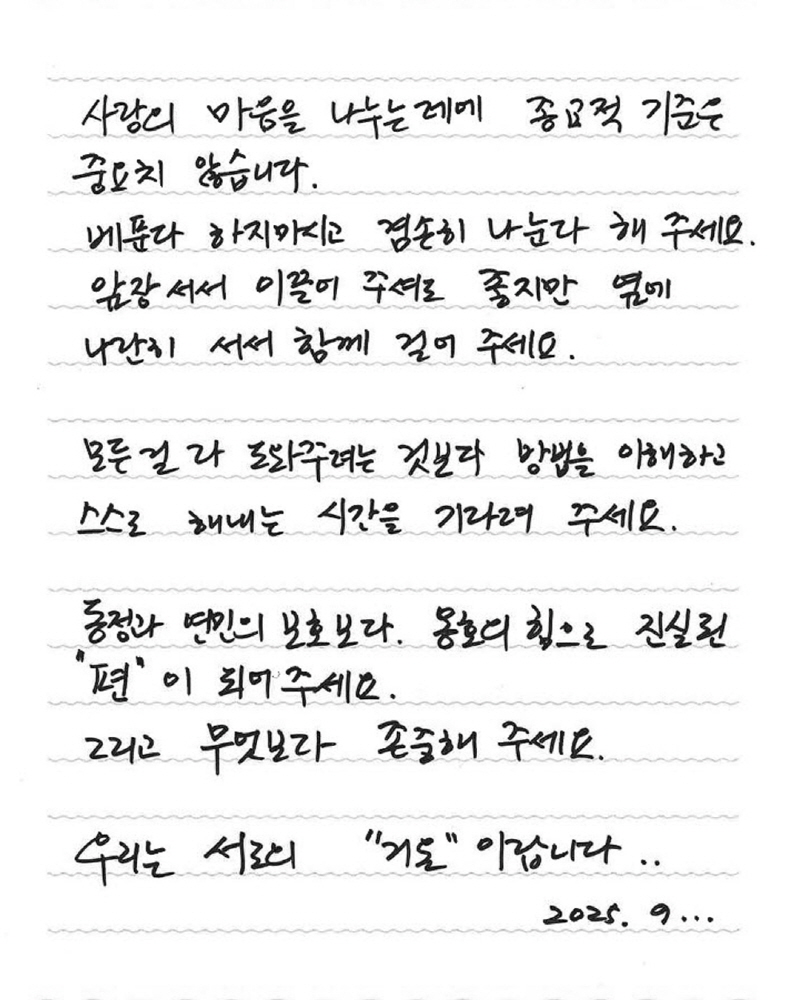 사랑의 마음을 나누는데에 종교적 기준은
중요치 않습니다.
베푼다 하지마시고 겸손히 나눈다 해 주세요.
앞장서서 이끌어 주셔도 좋지만 옆에
나란히 서서 함께 걸어 주세요.
모든걸 다 도와주려는 것보다 방법을 이해하고
스스로 해내는 시간을 기다려 주세요.
동정과 연민의 보호보다. 옹호의 힘으로 진실된
"편"이 되어주세요.
그리고 무엇보다 존중해 주세요.
우리는 서로의 "기도"이랍니다..
2025. 9...